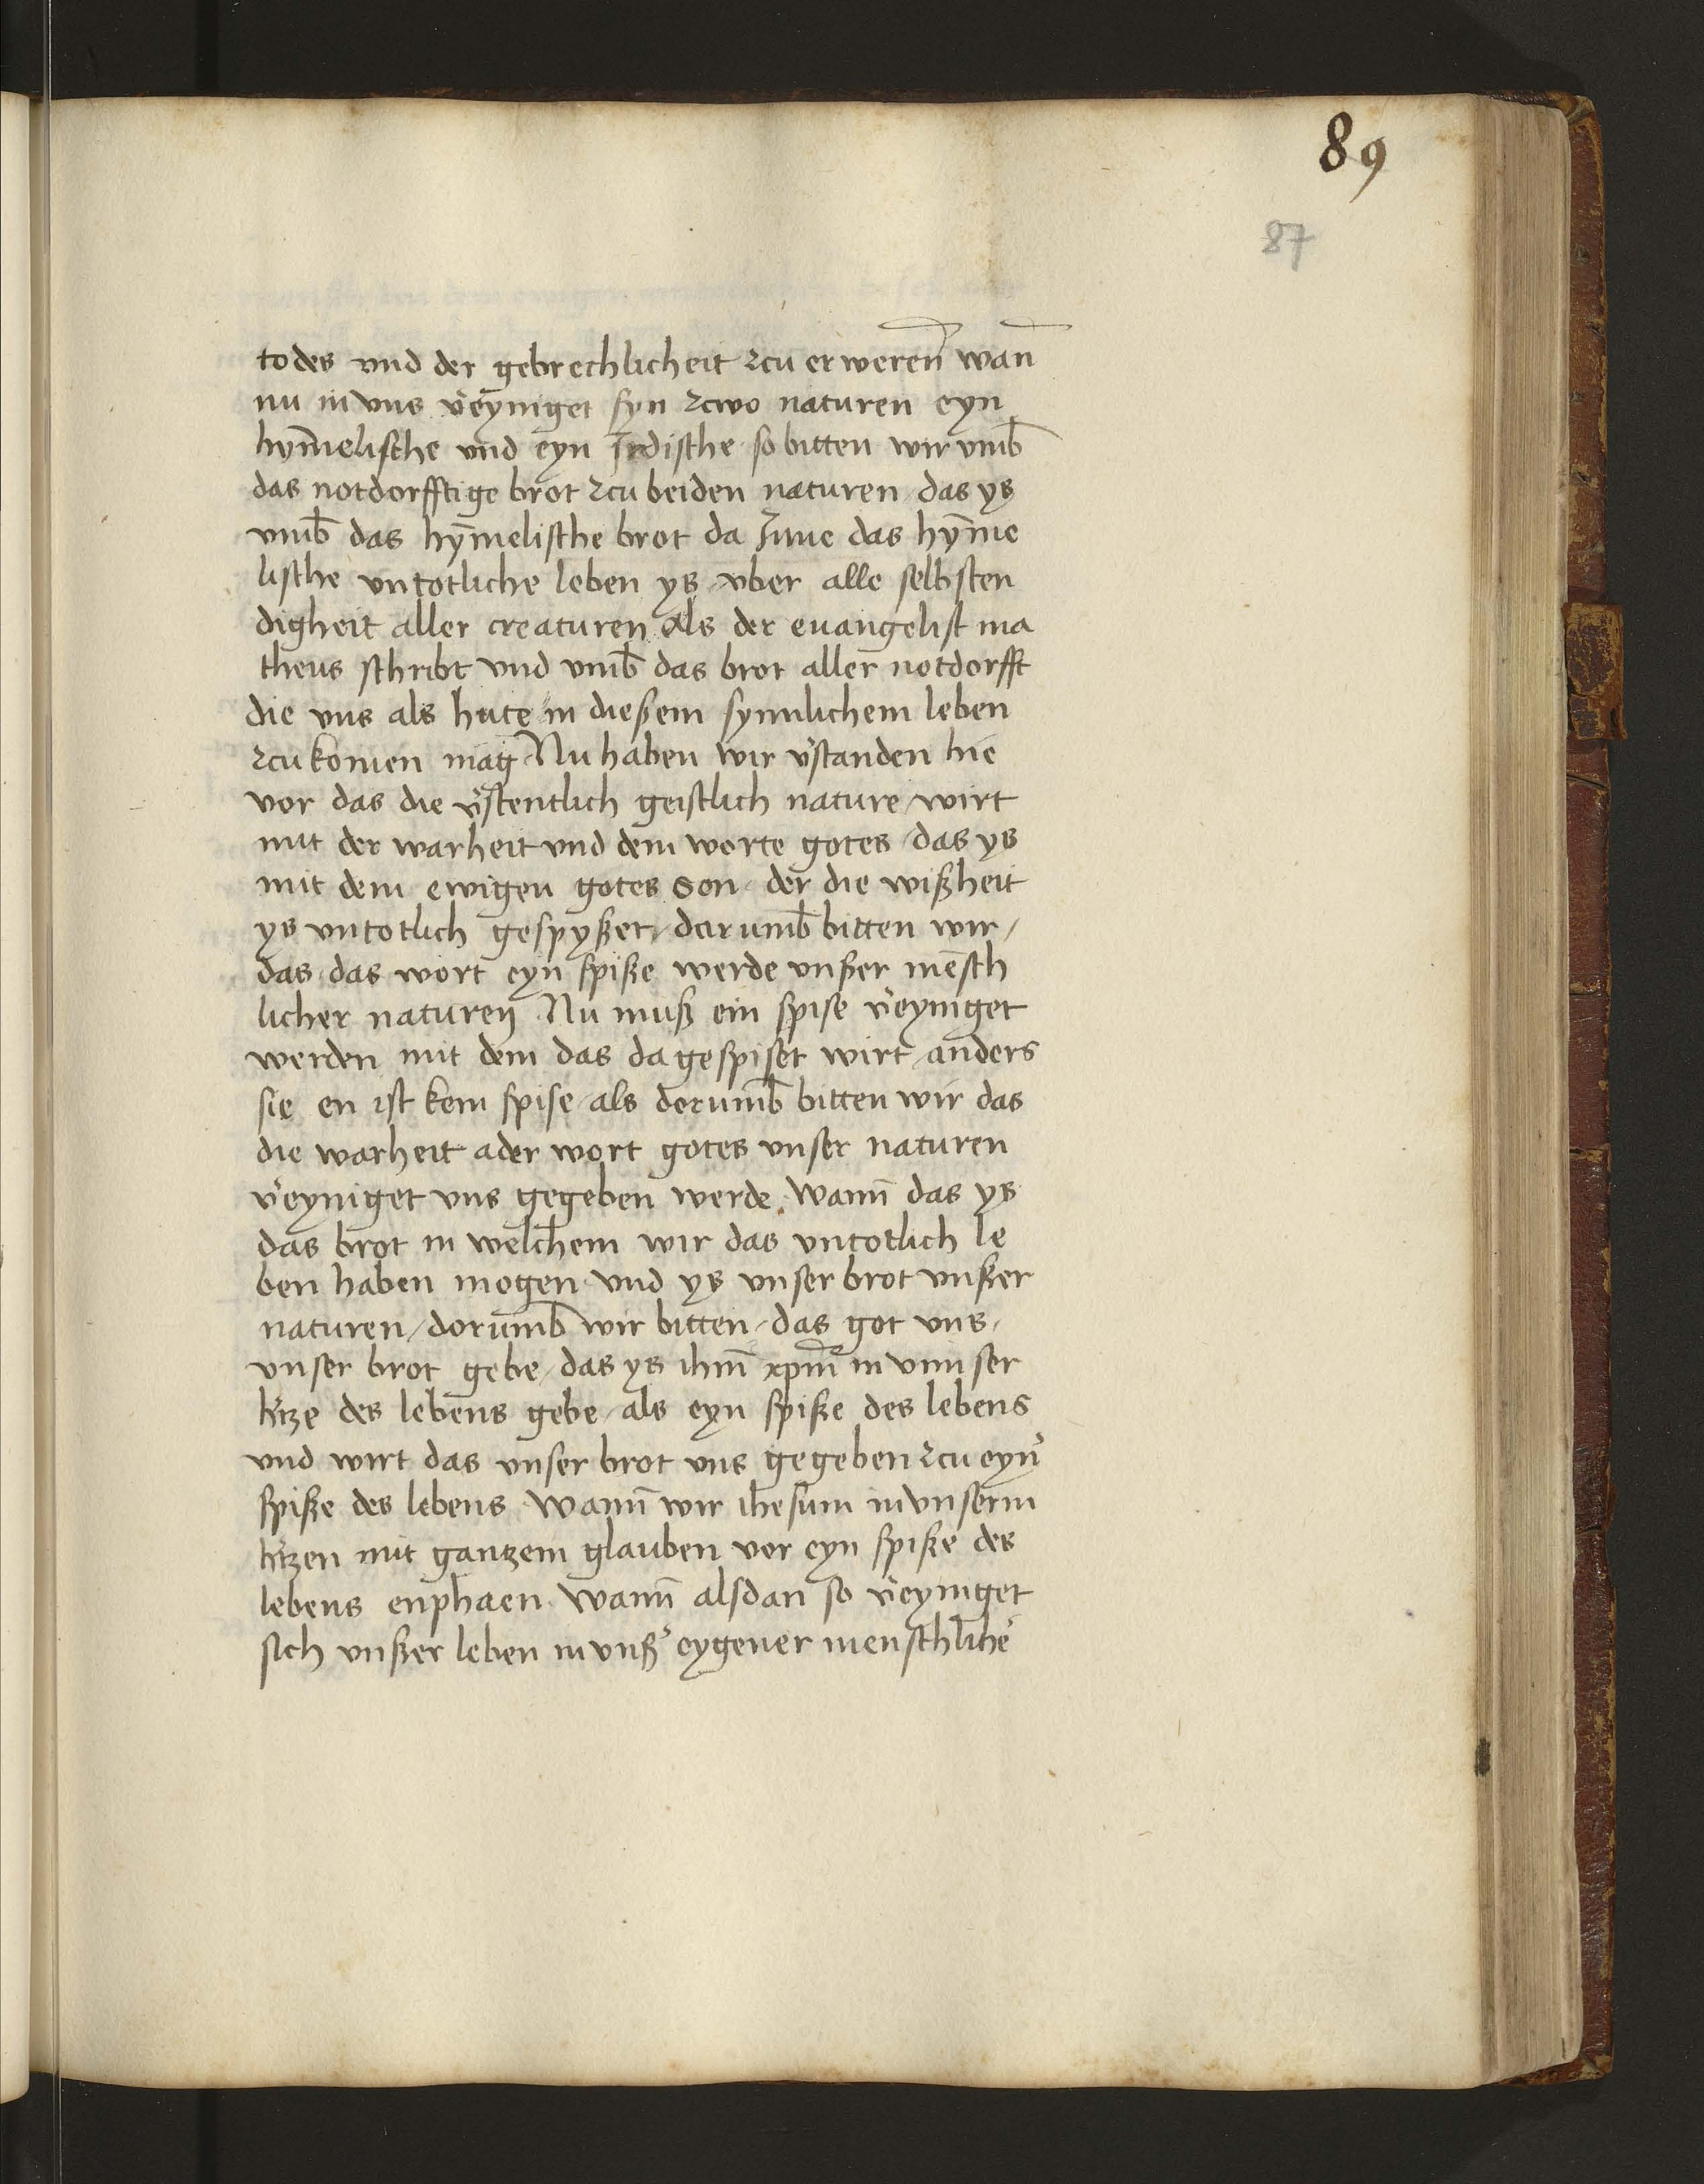 89
87
todes vnd der gebrechlicheit zcu erweren̄ wan̄
nu in vns v̓eyniget syn zcwo naturen eyn
hym̄elische vnd eyn Jrdische so bitten wir vmb̄
das notdorfftige brot zcu beiden naturen das ys
vmb̄ das hym̄elische brot da Jnne das hym̄e
lische vntotliche leben ys vber alle selbsten
digheit aller creaturen als der euangelist ma
theus schribt vnd vmb̄ das brot aller notdorfft
die vns als hute in dießem synnlichem leben
zcu komen mag Nu haben wir v̓standen hie
vor das die v̓stentlich geistlich nature wirt
mit der warheit vnd dem worte gotes das ys
mit dem ewigen gotes son der die wißheit
ys vntotlich gespyßet / darumb̄ bitten wir /
das das wort eyn spiße werde vnßer men̄sch
licher naturen Nu muß ein spise v̓eyniget
werden mit dem das da gespiset wirt anders
sie en ist kein spise als dorumb̄ bitten wir das
die warheit ader wort gotes vnser naturen
v̓eyniget vns gegeben werde wann̄ das ys
das brot in welchem wir das vntotlich le
ben haben mogen vnd ys vnser brot vnßer
naturen / dorumb̄ wir bitten / das got vns /
vnser brot gebe / das ys ihm̄ xpm̄ in vnnser
h̓tze des lebens gebe / als eyn spiße des lebens
vnd wirt das vnser brot vns gegeben zcu eyn̓
spiße des lebens wann̄ wir ihesum in vnserm
h̓tzen mit gantzem glauben vor eyn spiße des
lebens enphaen wann̄ alsdan so v̓eyniget
sich vnßer leben in vnß̓ eygener menschliche̓